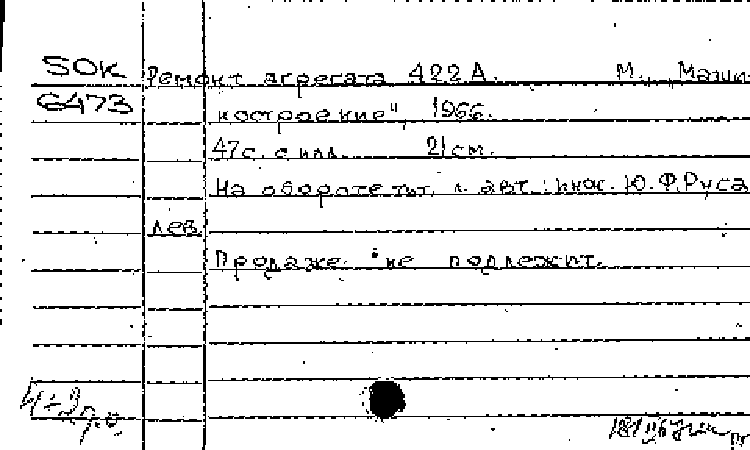 SOK Ремонт агрегата 422 А. М., „Маши-
6473 ностроение", 1966.
47 с. с илл. 21 см.
На обороте тит. л. авт.: инж. Ю.Ф.Руса
лев
Продаже не подлежит.